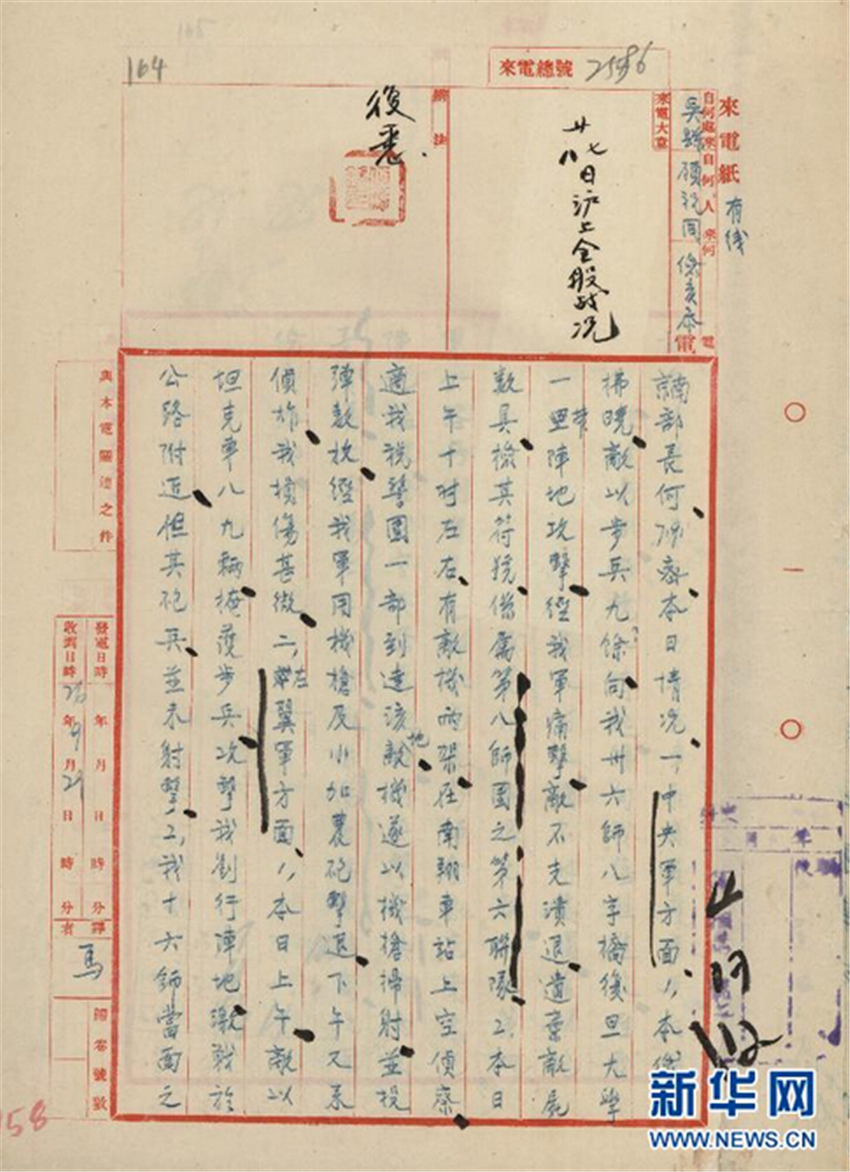 164
來電總號 2586
來電紙 有线
自何處來 自何人來 何電
吳縣 顧祝同
電
來電大意
廿七八日沪上全般战况
辦法
復悉.
南京部長何 密本日情况一,中央軍方面1,本
拂曉敵以步兵九余向我卅六師八字橋復旦大學
一帶陣地攻擊經我軍痛擊敵不克潰退遺棄敵屍
数具檢其符號係属第八師團之第六聯隊2.本日
上午十时左右有敵機兩架在南翔車站上空侦察
適我税警團一部到達該地敵機遂以機槍掃射並投
弹数枚經我軍用機槍及小加農砲擊退下午又来
偵炸我損傷甚微二,左翼軍方面1,本日上午敵以
坦克車八九輛掩護步兵攻擊我劉行陣地激戰於
公路附近但其砲兵並未射擊2,我十六師當面之
與本電關連之件
發電日時 年 月 日 時 分
收到日時 26年9月29日 時 分
譯者 馬
歸卷號數
58
○一○
新华网
WWW.NEWS.CN